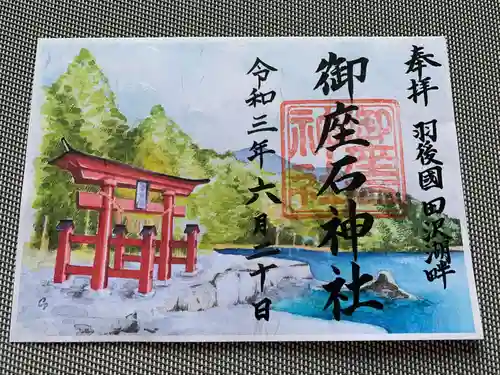 奉拝 羽後國田沢湖畔
御座石神社
令和三年六月二十日